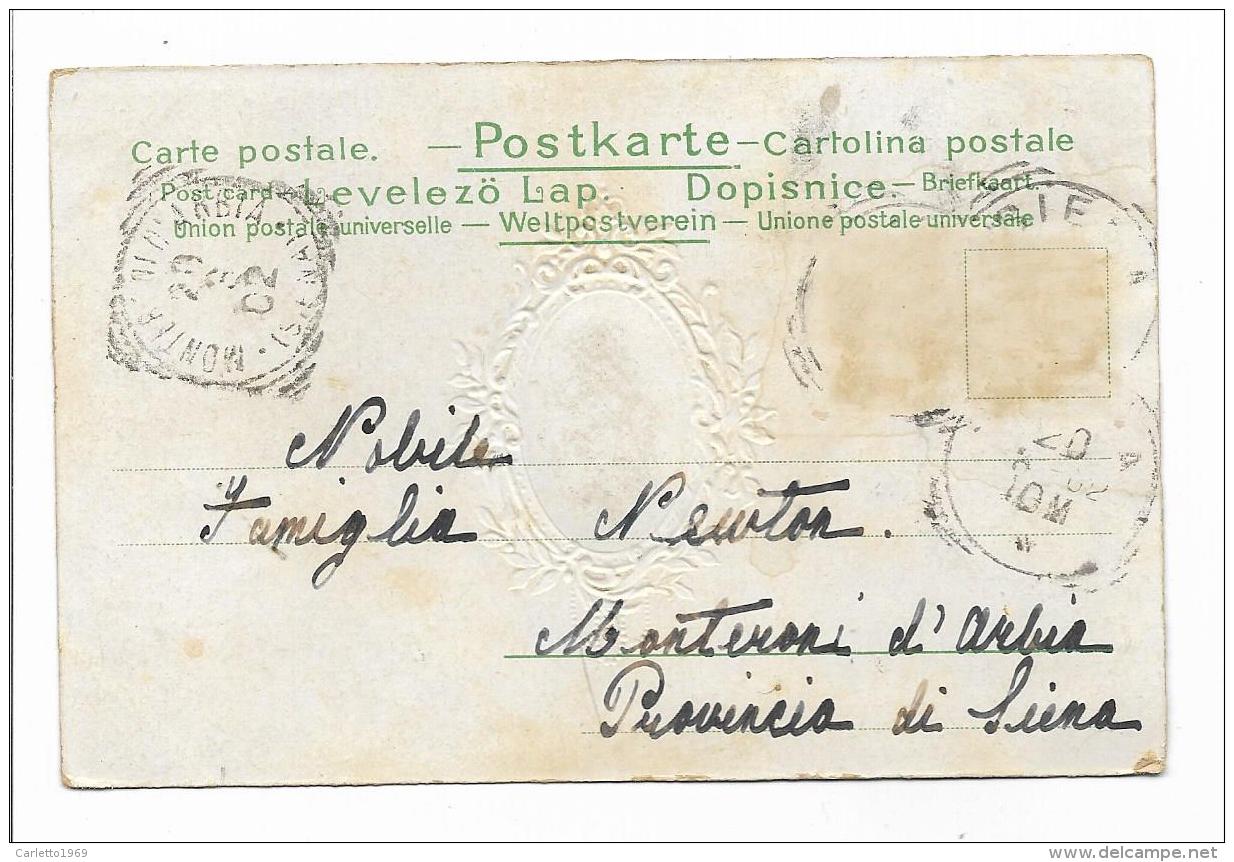 Carte postale. — Postkarte – Cartolina postale
Post card – Levelezö Lap. Dopisnice – Briefkaart.
Union postale universelle — Weltpostverein — Unione postale universale
ARBIA
(SIENA)
20
02
SIENA
20
10M
Nobile
Famiglia Newton.
Monteroni d'Arbia
Provincia di Siena
Carletto1969
www.delcampe.net